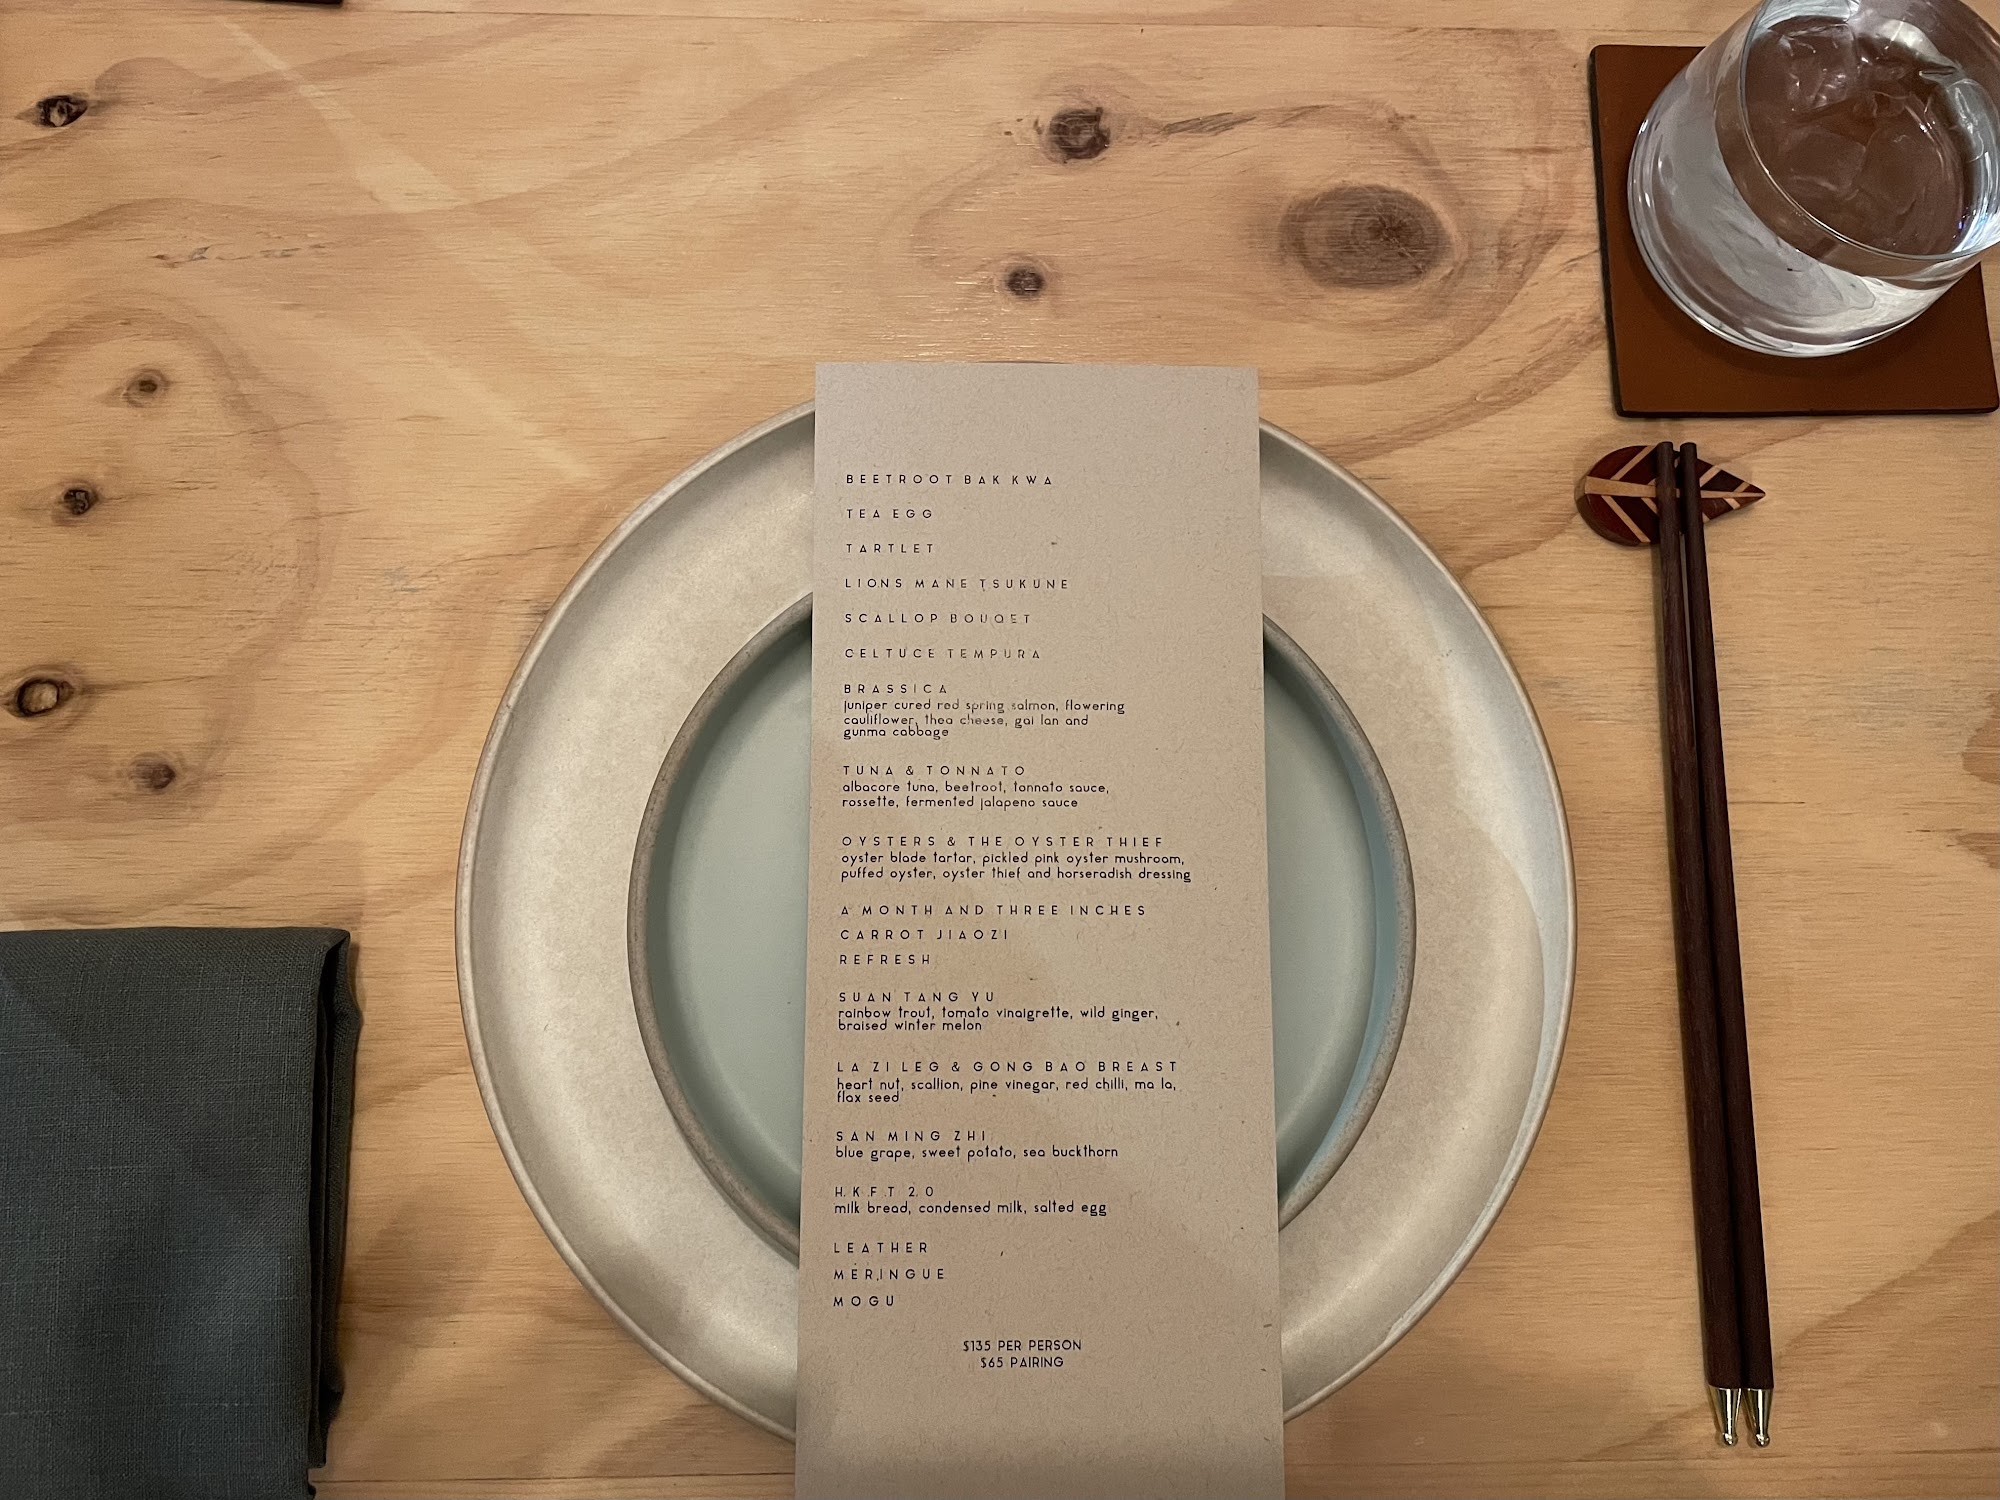 BEETROOT BAK KWA
TEA EGG
TARTLET
LIONS MANE TSUKUNE
SCALLOP BOUQET
CELTUCE TEMPURA
BRASSICA
juniper cured red spring salmon, flowering
cauliflower, thea cheese, gai lan and
gunma cabbage
TUNA & TONNATO
albacore tuna, beetroot, tonnato sauce,
rossette, fermented jalapeno sauce
OYSTERS & THE OYSTER THIEF
oyster blade tartar, pickled pink oyster mushroom,
puffed oyster, oyster thief and horseradish dressing
A MONTH AND THREE INCHES
CARROT JIAOZI
REFRESH
SUAN TANG YU
rainbow trout, tomato vinaigrette, wild ginger,
braised winter melon
LA ZI LEG & GONG BAO BREAST
heart nut, scallion, pine vinegar, red chilli, ma la,
flax seed
SAN MING ZHI
blue grape, sweet potato, sea buckthorn
H.K.F.T 2.0
milk bread, condensed milk, salted egg
LEATHER
MERINGUE
MOGU
$135 PER PERSON
$65 PAIRING